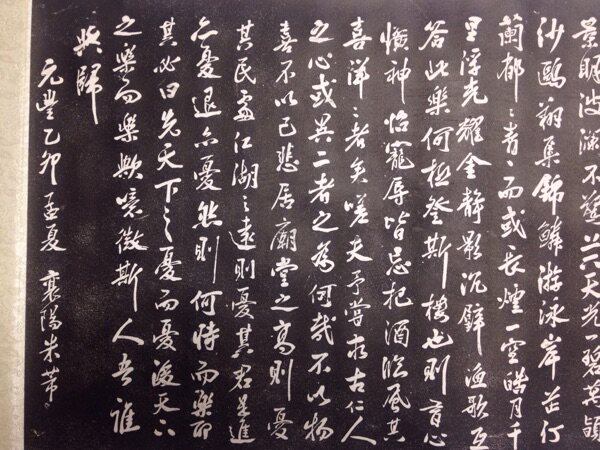 景明波瀾不驚上下天光一碧萬頃
沙鷗翔集錦鱗游泳岸芷汀
蘭郁〻青〻而或長煙一空皓月千
里浮光耀金靜影沉璧漁歌互
答此樂何極登斯樓也則有心
曠神怡寵辱皆忘把酒臨風其
喜洋〻者矣嗟夫予嘗求古仁人
之心或異二者之為何哉不以物
喜不以己悲居廟堂之高則憂
其民處江湖之遠則憂其君是進
亦憂退亦憂然則何時而樂耶
其必曰先天下之憂而憂後天下
之樂而樂歟噫微斯人吾誰
與歸
元豐乙卯孟夏襄陽米芾